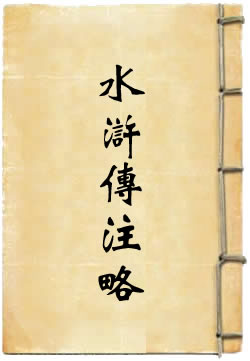 水滸傳注略